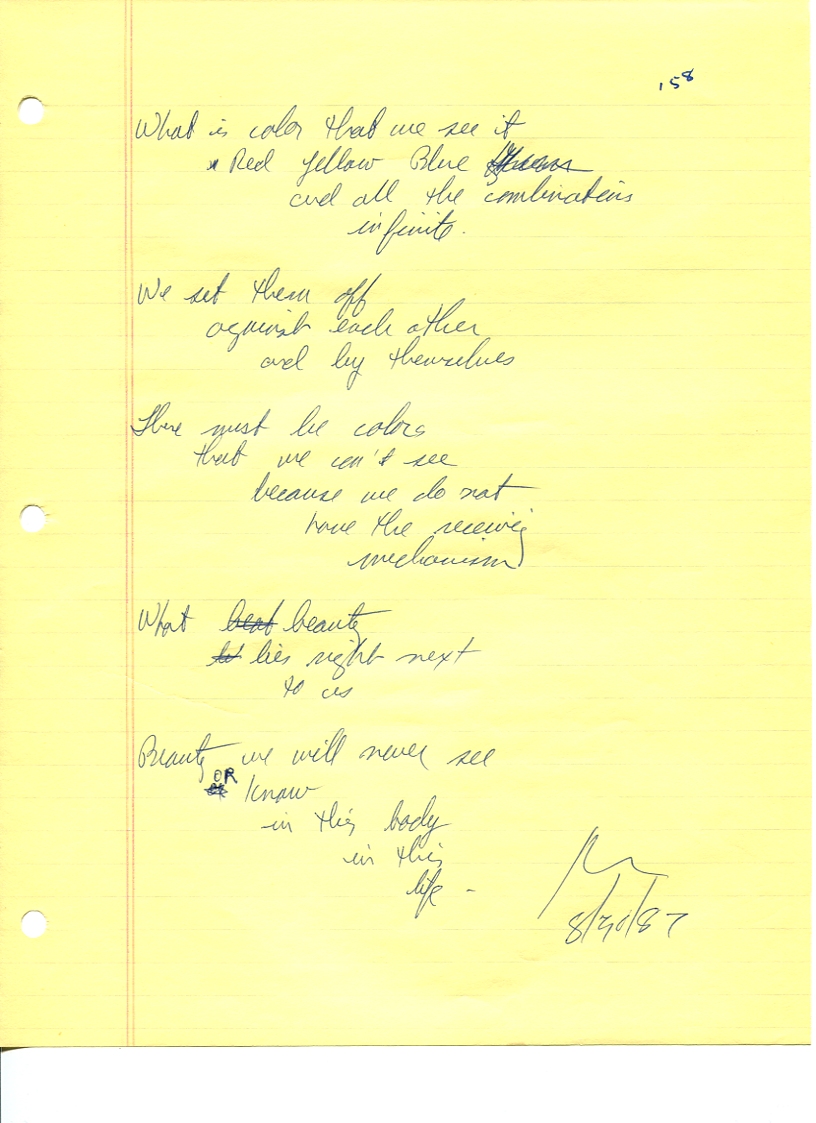 158
What is color that we see it
Red Yellow Blue
and all the combinations
infinite.
We set them off
against each other
and by themselves
There must be colors
that we can't see
because we do not
have the receiving
mechanism
What beat beauty
lies right next
to us
Beauty we will never see
OR know
in this body
in this
life -
8/30/87